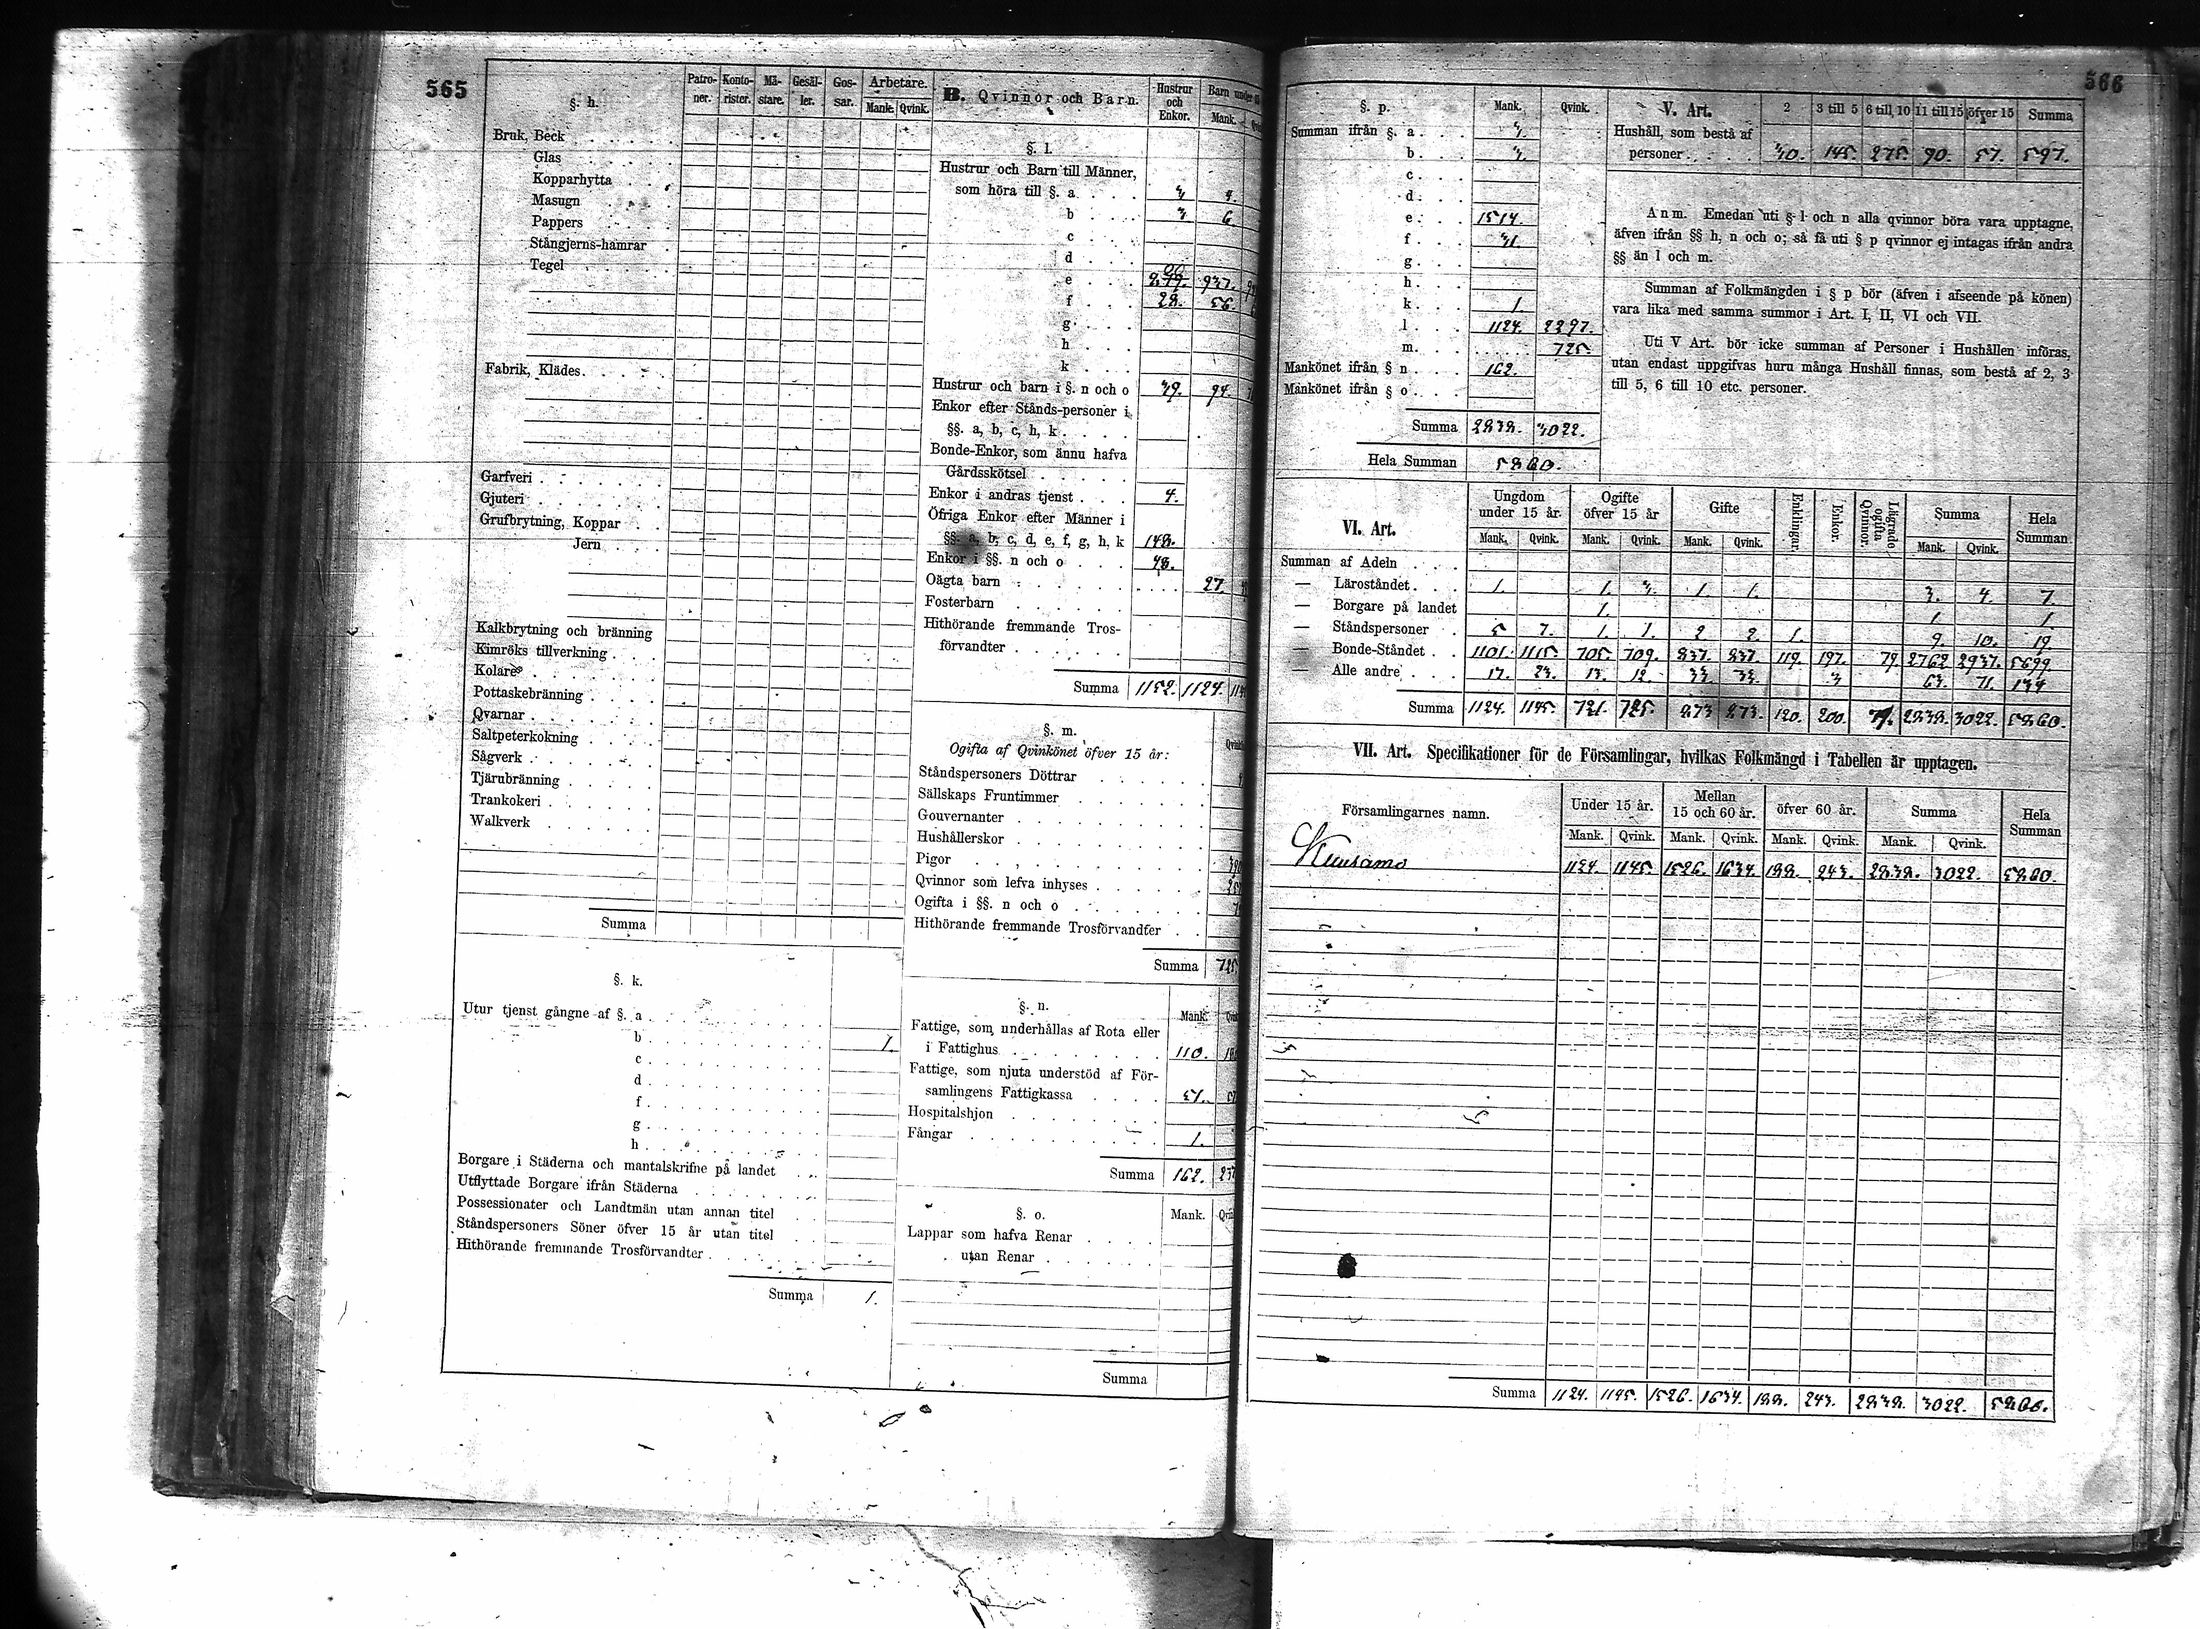 565
§. h.
Patro-ner. Konto-rister. Mä-stare. Gesäl-ler. Gos-sar. Arbetare. Mank. Qvink.
Bruk, Beck
Glas
Kopparhytta
Masugn
Pappers
Stångjerns-hamrar
Tegel
Fabrik, Klädes
Garfveri
Gjuteri
Grufbrytning, Koppar
Jern
Kalkbrytning och bränning
Kimröks tillverkning
Kolare
Pottaskebränning
Qvarnar
Saltpeterkokning
Sågverk
Tjärubränning
Trankokeri
Walkverk
Summa
§. k.
Utur tjenst gångne af §. a
b 1.
c
d
f
g
h
Borgare i Städerna och mantalskrifne på landet
Utflyttade Borgare ifrån Städerna
Possessionater och Landtmän utan annan titel
Ståndspersoners Söner öfver 15 år utan titel
Hithörande fremmande Trosförvandter
Summa 1.
B. Qvinnor och Barn. Hustrur och Enkor. Barn under Mank.
§. l.
Hustrur och Barn till Männer,
som höra till §. a 3 4.
b 3 6.
c
d
e 937.
f 28. 56.
g
h
k
Hustrur och barn i §. n och o 39. 94.
Enkor efter Stånds-personer i
§§. a, b, c, h, k
Bonde-Enkor, som ännu hafva
Gårdsskötsel
Enkor i andras tjenst 4.
Öfriga Enkor efter Männer i
§§. a, b, c, d, e, f, g, h, k 148.
Enkor i §§. n och o 48.
Oägta barn 27.
Fosterbarn
Hithörande fremmande Tros-
förvandter
Summa 1152. 1124.
§. m.
Ogifta af Qvinkönet öfver 15 år:
Ståndspersoners Döttrar
Sällskaps Fruntimmer
Gouvernanter
Hushållerskor
Pigor
Qvinnor som lefva inhyses
Ogifta i §§. n och o
Hithörande fremmande Trosförvandter
Summa 725
§. n. Mank.
Fattige, som underhållas af Rota eller
i Fattighus 110.
Fattige, som njuta understöd af För-
samlingens Fattigkassa 51.
Hospitalshjon
Fångar 1.
Summa 162.
§. o. Mank.
Lappar som hafva Renar
utan Renar
Summa
566
§. p. Mank. Qvink.
Summan ifrån §. a 3.
b 3.
c
d
e 1514.
f 31.
g
h
k 1.
l 1124. 2297.
m 725.
Mankönet ifrån § n 162.
Mankönet ifrån § o
Summa 2838. 3022.
Hela Summan 5860.
V. Art. 2 3 till 5 6 till 10 11 till 15 öfver 15 Summa
Hushåll, som bestå af
personer 30. 145. 275. 90. 57. 597.
Anm. Emedan uti § l och n alla qvinnor böra vara upptagne,
äfven ifrån §§ h, n och o; så få uti § p qvinnor ej intagas ifrån andra
§§ än l och m.
Summan af Folkmängden i § p bör (äfven i afseende på könen)
vara lika med samma summor i Art. I, II, VI och VII.
Uti V Art. bör icke summan af Personer i Hushållen införas,
utan endast uppgifvas huru många Hushåll finnas, som bestå af 2, 3
till 5, 6 till 10 etc. personer.
VI. Art. Ungdom under 15 år. Ogifte öfver 15 år Gifte Enklingar. Enkor. Lägrade ogifta Qvinnor. Summa Hela Summan
Mank. Qvink. Mank. Qvink. Mank. Qvink. Mank. Qvink.
Summan af Adeln
— Läroståndet 1. 1. 3. 1. 1. 3. 4. 7.
— Borgare på landet 1. 1. 1
— Ståndspersoner 5 7. 1. 1. 2 2. 1. 9. 10. 19.
— Bonde-Ståndet 1101. 1115. 705. 709. 837. 837. 119. 197. 79. 2762 2937. 5699.
— Alle andre 17. 23. 13. 12. 33. 33. 3 63. 71. 134
Summa 1124. 1145. 721. 725. 873 873. 120. 200. 79. 2838. 3022. 5860.
VII. Art. Specifikationer för de Församlingar, hvilkas Folkmängd i Tabellen är upptagen.
Församlingarnes namn. Under 15 år. Mellan 15 och 60 år. öfver 60 år. Summa Hela Summan
Mank. Qvink. Mank. Qvink. Mank. Qvink. Mank. Qvink.
Kuusamo 1124. 1145. 1526. 1634. 188. 243. 2838. 3022. 5860.
Summa 1124. 1145. 1526. 1634. 188. 243. 2838. 3022. 5860.